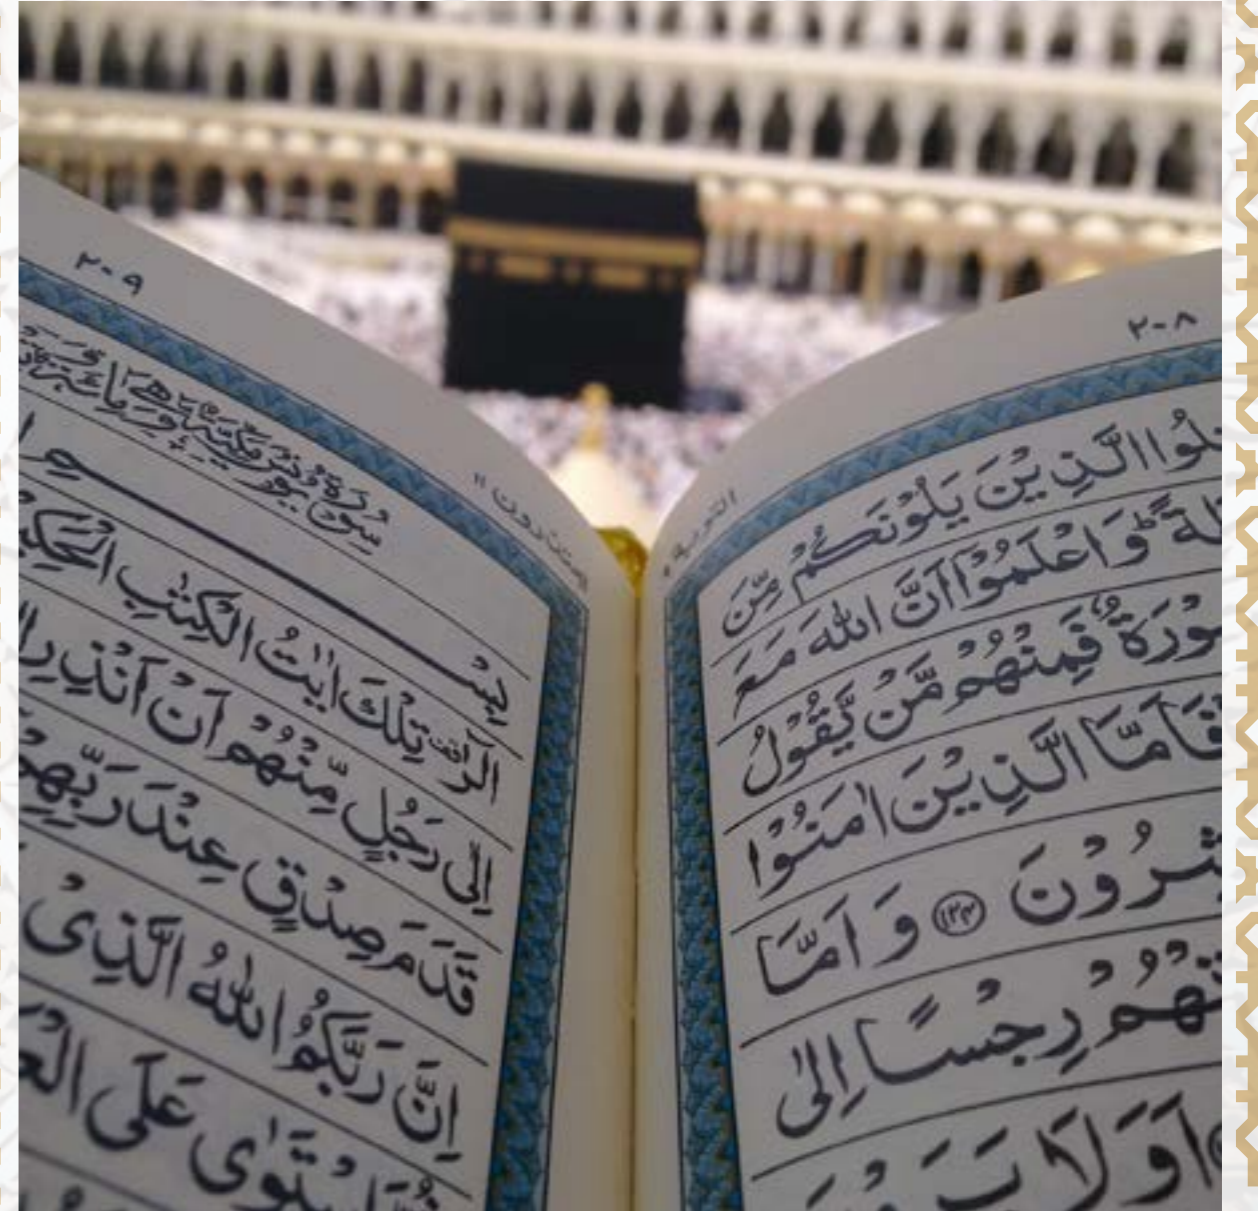 ۲۰۸
التوبة ۹
الَّذِيْنَ يَلُوْنَكُمْ مِّنَ
وَاعْلَمُوْۤا اَنَّ اللّٰهَ مَعَ
سُوْرَةٌ فَمِنْهُمْ مَّنْ يَّقُوْلُ
فَاَمَّا الَّذِيْنَ اٰمَنُوْا
شِرُوْنَ ۱۲۴ وَاَمَّا
تْهُمْ رِجْسًا اِلٰى
اَوَلَا
۲۰۹
يعتذرون ۱۱
سُوْرَةُ يُوْنُسَ مَكِّيَّةٌ وَّهِيَ مِائَةٌ
بِسْ
الٓرٰ تِلْكَ اٰيٰتُ الْكِتٰبِ الْحَكِيْ
اِلٰى رَجُلٍ مِّنْهُمْ اَنْ اَنْذِرِ ال
قَدَمَ صِدْقٍ عِنْدَ رَبِّهِمْ
اِنَّ رَبَّكُمُ اللّٰهُ الَّذِيْ
ثُمَّ اسْتَوٰى عَلَى الْعَ